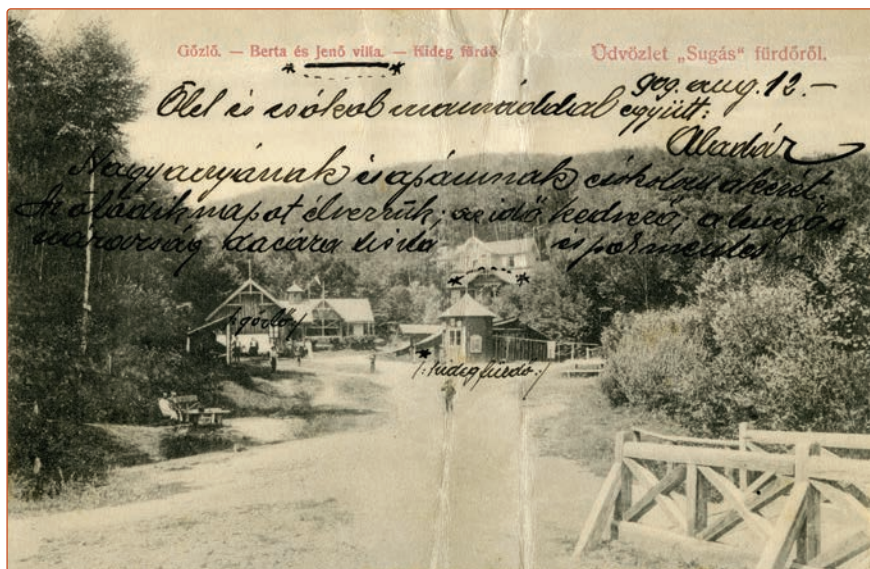 Gőzlő. — Berta és Jenő villa. — Hideg fürdő
Üdvözlet „Sugás” fürdőről.
909. aug. 12.—
Ölel és csókol mamáddal együtt:
Aladár
Nagyanyának és apámnak csókolom a kezét.
Az ötödik napot élvezzük; az idő kedvező; a levegő a
város dacára tiszta és pormentes.
/:gőzlő:/
/:hideg fürdő:/